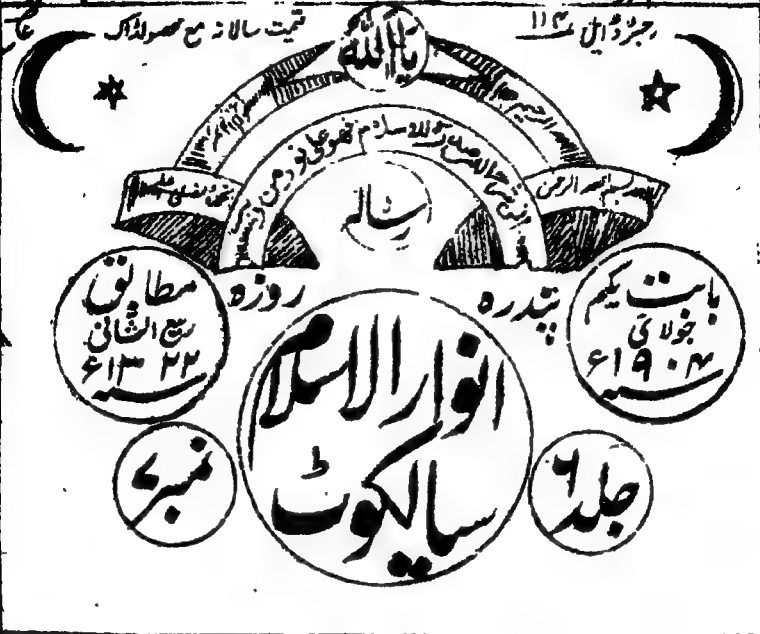 رجسٹرڈ ایل ۱۱۴
قیمت سالانہ مع محصولڈاک
یا اللہ
بسم اللہ الرحمن الرحیم
نحمدہ ونصلی علی
افمن شرح اللہ صدرہ للاسلام فھو علی نور من ربہ
رسالہ
پندرہ
روزہ
بابت یکم
جولائی
سنہ ۱۹۰۴ء
مطابق
ربیع الثانی
سنہ ۱۳۲۲ء
انوار الاسلام
سیالکوٹ
جلد ۶
نمبر ۷